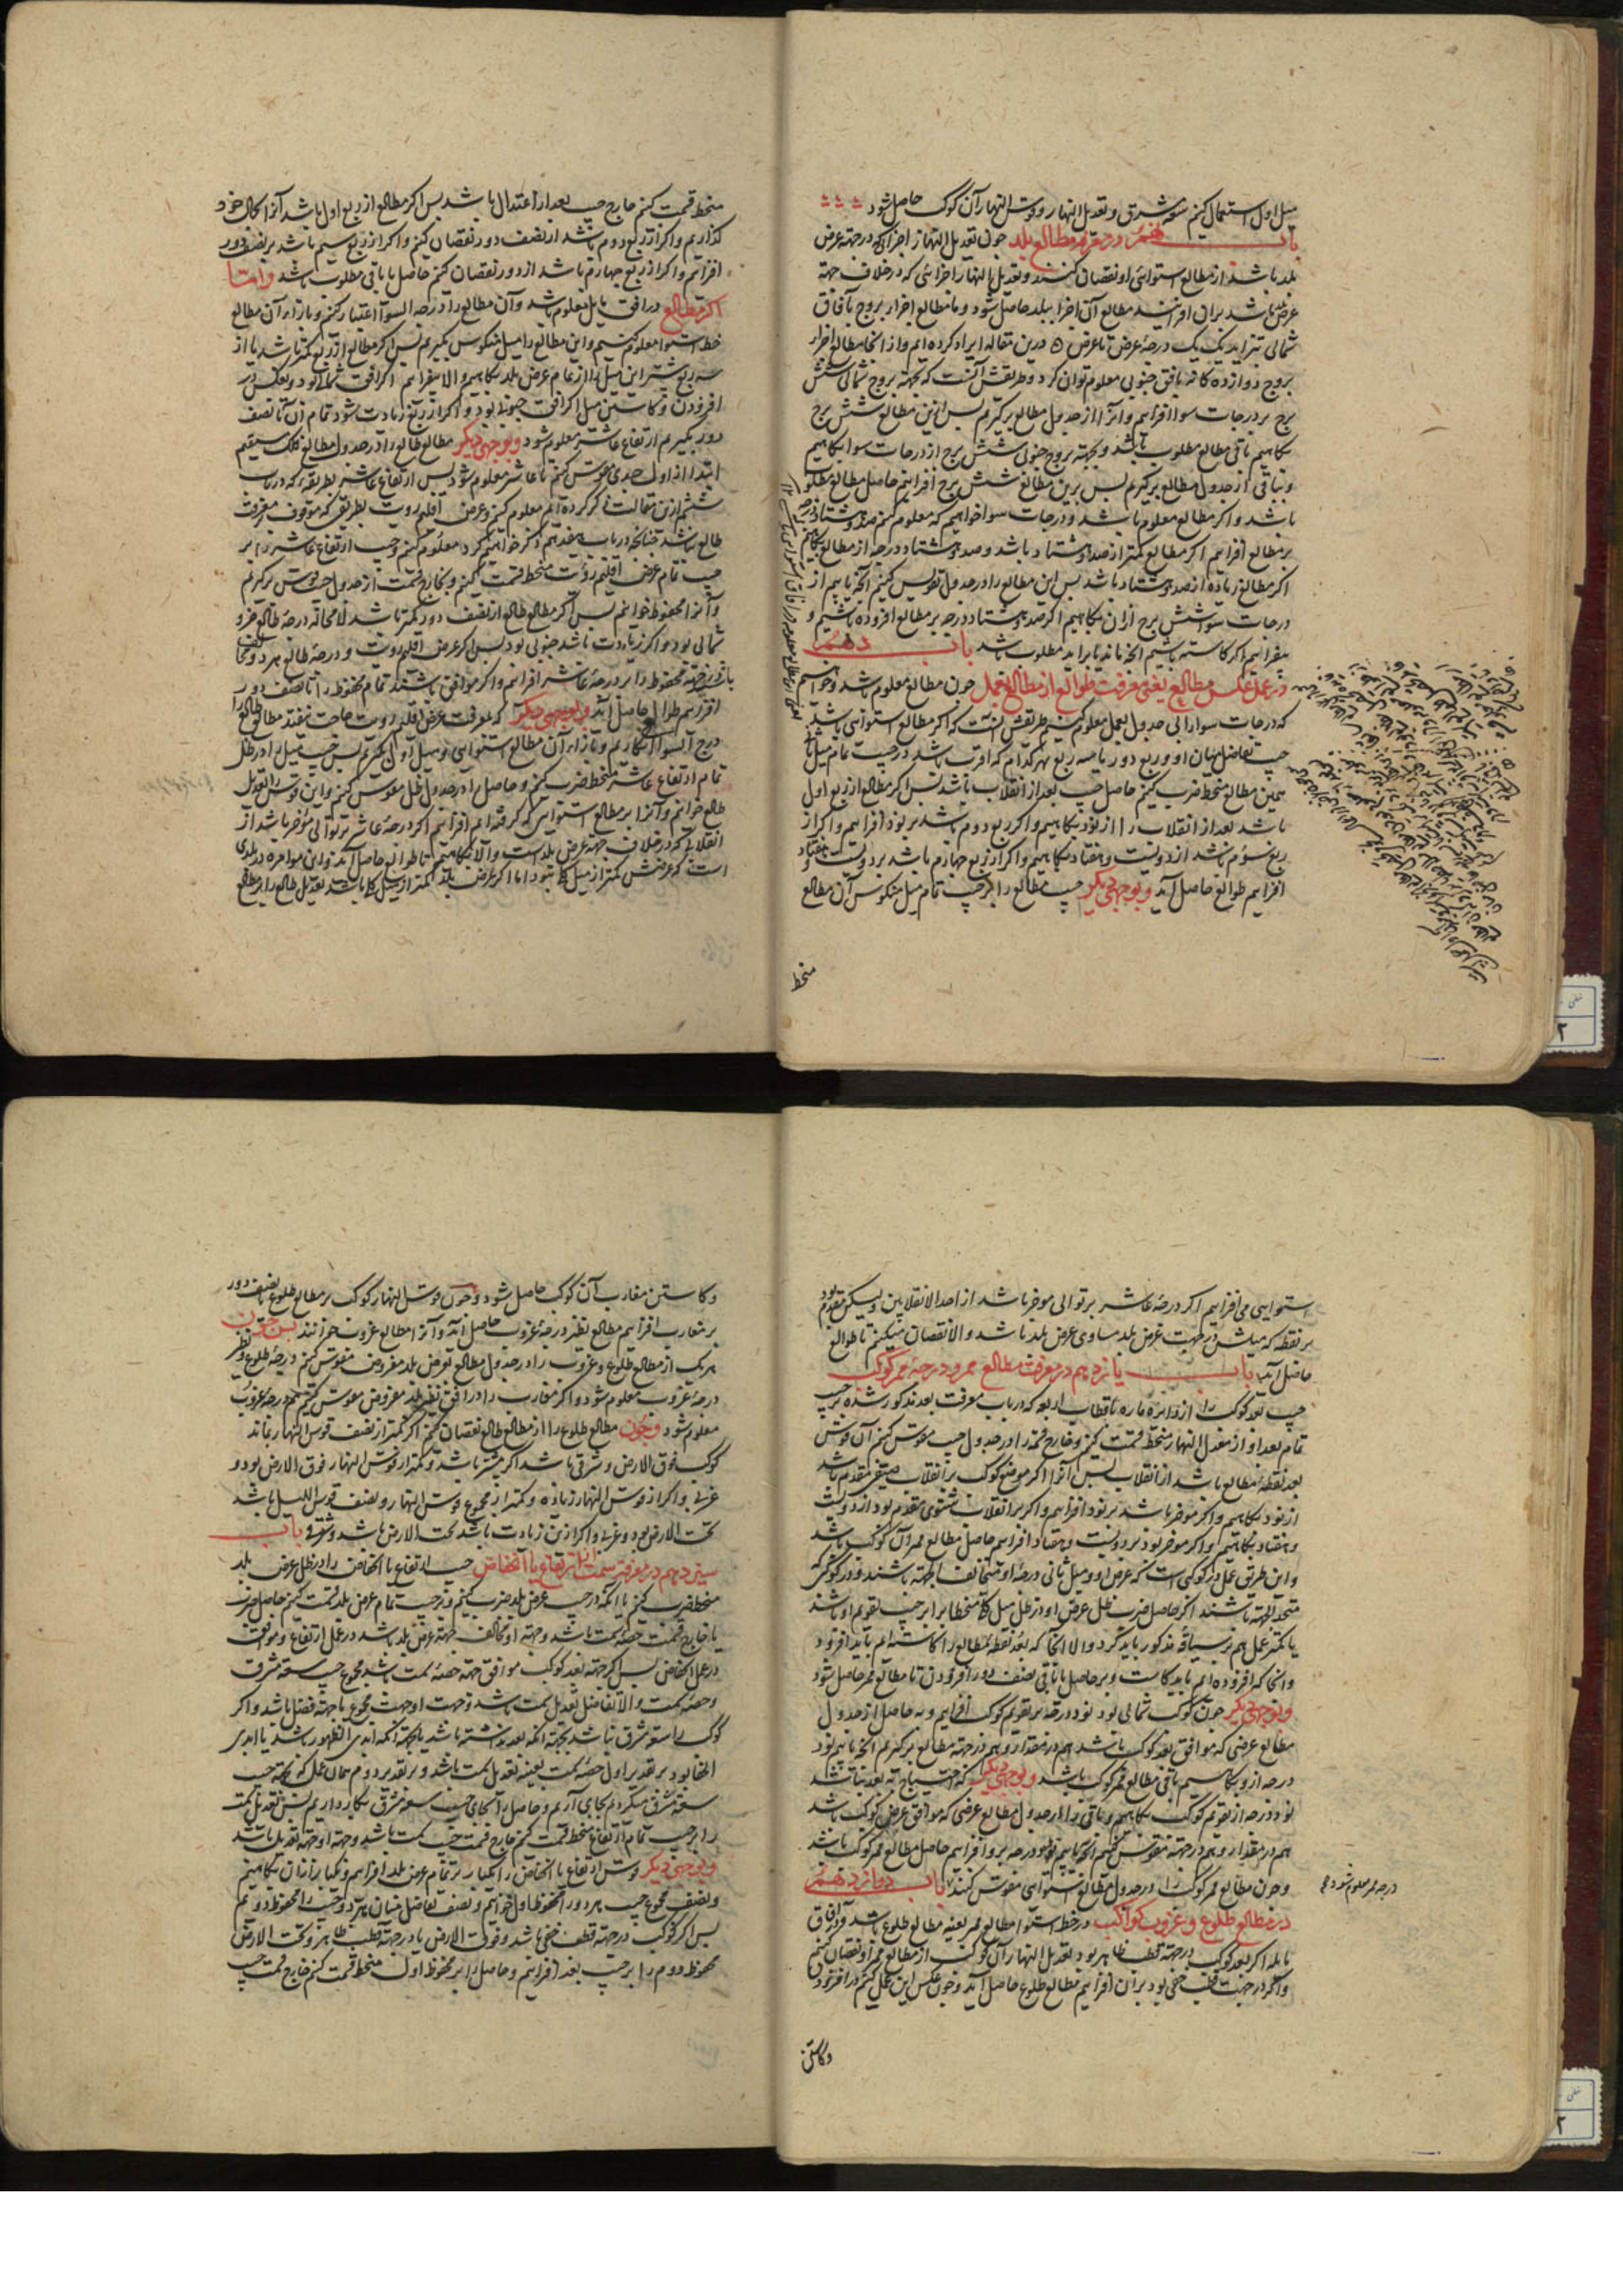 میل اول استعمال کنیم سعه مشرق و تعدیل النهار و قوس النهار آن کوکب حاصل شود
باب نهم در معرفة مطالع بلد چون تعدیل النهار اجزائی که در جهة عرض
بلد باشد از مطالع استوائی او نقصان کنند و تعدیل النهار اجزائی که در خلاف جهة
عرض باشد بران افزایند مطالع آن اجزا ببلد حاصل شود و ما مطالع اجزاء بروج بآفاق
شمالی بتزاید یک یک درجهٔ عرض تا عرض درین مقاله ایراد کرده ایم و از آنجا مطالع اجزاء
بروج دوازده کانه بافق جنوبی معلوم توان کرد و طریقش آنست که بجهة بروج شمالی شش
برج بر درجات سوا افزاییم و آنرا از جدول مطالع برگیریم پس ازین مطالع شش برج
بکاهیم باقی مطالع مطلوب باشد و بجهة بروج جنوبی شش برج از درجات سوا بکاهیم
و بباقی از جدول مطالع برگیریم پس برین مطالع شش برج افزاییم حاصل مطالع مطلوب
باشد و اگر مطالع معلوم باشد و درجات سوا خواهیم که معلوم کنیم صد و هشتاد درجه
بر مطالع افزاییم اگر مطالع کمتر از صد و هشتاد باشد و صد و هشتاد درجه از مطالع بکاهیم
اگر مطالع زیاده از صد و هشتاد باشد پس این مطالع را در جدول تقویس کنیم آنچه یابیم از
درجات سوا شش برج ازان بکاهیم اگر صد و هشتاد درجه بر مطالع افزوده باشیم و
بیفزاییم اگر کاسته باشیم آنچه ماند یا برآید مطلوب باشد باب دهم
در عمل عکس مطالع یعنی معرفت طوالع از مطالع بعمل چون مطالع معلوم باشد و خواهیم
که درجات سوا را بی جدول بعمل معلوم کنیم طریقش آنست که اگر مطالع استوائی باشد
جیب تفاضل میان او و ربع دور یا سه ربع هر کدام که اقرب باشد در جیب تمام میل
همین مطالع منحط ضرب کنیم حاصل جیب بعد از انقلاب باشد پس اگر مطالع از ربع اول
باشد بعد از انقلاب را از نود بکاهیم و اگر ربع دوم باشد بر نود افزاییم و اگر از
ربع سوم باشد از دویست و هفتاد بکاهیم و اگر از ربع چهارم باشد بر دویست و هفتاد
افزاییم طوالع حاصل آید و بوجهی دیگر جیب مطالع را بر جیب تمام میل منکوس آن مطالع
منحط
منحط قسمت کنیم خارج جیب بعد از اعتدال باشد پس اگر مطالع از ربع اول باشد آنرا بحال خود
گذاریم و اگر از ربع دوم باشد از نصف دور نقصان کنیم و اگر از ربع سیم باشد بر نصف دور
افزاییم و اگر از ربع چهارم باشد از دور نقصان کنیم حاصل یا باقی مطلوب باشد و اما
اگر مطالع در افق مایل معلوم باشد و آن مطالع را درجه السوا اعتبار کنیم و بازاء آن مطالع
خط استوا معلوم کنیم و این مطالع را میل منکوس بگیریم پس اگر مطالع از ربع کمتر باشد یا از
سه ربع بیشتر این میل را از تمام عرض بلد بکاهیم و الا بیفزاییم اگر افق شمالی بود و بعکس در
افزودن و کاستن میل اگر افق جنوبی بود و اگر از ربع زیادت شود تمام آن تا نصف
دور بگیریم ارتفاع عاشر معلوم شود و بوجهی دیگر مطالع طالع را در جدول مطالع فلک مستقیم
ابتدا از اول جدی مقوس کنیم تا عاشر معلوم شود پس ارتفاع عاشر بطریقی که در باب
ششم ازین مقالت ذکر کرده ایم معلوم کنیم و عرض اقلیم رویت بطریقی که موقوف بمعرفت
طالع نباشد چنانچه در باب هفدهم ذکر خواهیم کرد معلوم کنیم و جیب ارتفاع عاشر را بر
جیب تمام عرض اقلیم رؤیت منحط قسمت کنیم و بخارج قسمت از جدول جیب قوس برگیریم
و آنرا محفوظ خوانیم پس اگر مطالع طالع از نصف دور کمتر باشد لامحاله درجهٔ طالع جزو
شمالی بود و اگر زیادت باشد جنوبی بود پس اگر عرض اقلیم رویت و درجهٔ طالع هر دو مخالف
باشند در جهة محفوظ را بر درجهٔ عاشر افزاییم و اگر موافق باشند تمام محفوظ را تا نصف دور
افزاییم طوالع حاصل آید و بوجهی دیگر که بمعرفت عرض اقلیم رویت حاجت نیفتد مطالع طالع را
درج السوا انگاریم و بازاء آن مطالع استوایی و میل اول بگیریم پس جیب میل را در ظل
تمام ارتفاع عاشر منحط ضرب کنیم و حاصل را در جدول ظل مقوس کنیم و این قوس را تعدیل
طالع خوانیم و آنرا بر مطالع استوایی که گرفته ایم افزاییم اگر درجهٔ عاشر بر توالی مؤخر باشد از
انقلابی که در خلاف جهة عرض بلد است و الا بکاهیم تا طوالع حاصل آید و این موامره در بلدی
است که عرضش کمتر از میل کلی نبود اما اگر عرض بلد کمتر از میل کلی باشد تعدیل طالع را بر مطالع
استوایی می افزاییم اگر درجهٔ عاشر بر توالی موخر باشد از احد الانقلابین و لیکن مقدم بود
بر نقطه که میلش در جهت عرض بلد مساوی عرض بلد باشد و الا نقصان میکنیم تا طوالع
حاصل آید باب یازدهم در معرفت مطالع ممر و درجهٔ ممر کوکب
جیب بعد کوکب را از دایرهٔ ماره باقطاب اربعه که در باب معرفت بعد مذکور شده بر جیب
تمام بعد او از معدل النهار منحط قسمت کنیم و خارج قسمة را در جدول جیب مقوس کنیم آن قوس
بعد نقطهٔ مطالع باشد از انقلاب پس آنرا اگر موضع کوکب بر انقلاب صیفی مقدم باشد
از نود بکاهیم و اگر موخر باشد بر نود افزاییم و اگر بر انقلاب شتوی مقدم بود از دویست
و هفتاد بکاهیم و اگر موخر بود بر دویست و هفتاد افزاییم حاصل مطالع ممر آن کوکب باشد
و این طریق عمل در کوکبی است که عرض او و میل ثانی درجهٔ او متخالف الجهة باشند و در کوکبی که
متحد الجهة باشند اگر حاصل ضرب ظل عرض او در ظل میل کلی منحطا برابر جیب تقویم او باشد
یا کمتر عمل هم بر سیاقهٔ مذکور باید کرد و الا آنجا که بعد نقطهٔ مطالع را کاسته ایم باید افزود
و آنجا که افزوده ایم باید کاست و بر حاصل یا باقی نصف دور افزودن تا مطالع ممر حاصل شود
و بوجهی دیگر چون کوکب شمالی بود نود درجه بر تقویم کوکب افزاییم و به حاصل از جدول
مطالع عرضی که موافق بعد کوکب باشد هم در مقدار و هم در جهة مطالع برگیریم آنچه یابیم نود
درجه ازو بکاهیم باقی مطالع ممر کوکب باشد و بوجهی دیگر که احتیاج به بعد نباشد
نود درجه از تقویم کوکب بکاهیم و باقی را در جدول مطالع عرضی که موافق عرض کوکب باشد
هم در مقدار و هم در جهة مقوس کنیم آنچه یابیم نود درجه برو افزاییم حاصل مطالع ممر کوکب باشد
و چون مطالع ممر کوکب را در جدول مطالع استوایی مقوس کنند باب دوازدهم
درجه ممر معلوم شود
در مطالع طلوع و غروب کواکب در خط استوا مطالع ممر بعینه مطالع طلوع باشد و در آفاق
مایله اگر بعد کوکب در جهة قطب ظاهر بود تعدیل النهار آن کوکب از مطالع ممر او نقصان کنیم
و اگر در جهت قطب خفی بود بران افزاییم مطالع طلوع حاصل آید و چون عکس این عمل کنیم در افزودن
و کاستن
و کاستن مغارب آن کوکب حاصل شود و چون قوس النهار کوکب بر مطالع طلوع نصف دور
بر مغارب افزاییم مطالع نظیر درجهٔ غروب حاصل آید و آنرا مطالع غروب خوانند پس چون
هر یک از مطالع طلوع و غروب را در جدول مطالع بعرض بلد مفروض مقوس کنیم درجهٔ طلوع و نظیر
درجهٔ غروب معلوم شود و اگر مغارب را در افق نظیر بلد مفروض مقوس کنیم هم درجهٔ غروب
معلوم شود و چون مطالع طلوع را از مطالع طالع نقصان کنیم اگر کمتر از نصف قوس النهار بماند
کوکب فوق الارض و شرقی باشد اگر بیشتر باشد و کمتر از قوس النهار فوق الارض بود و
غربی و اگر از قوس النهار زیاده و کمتر از مجموع قوس النهار و نصف قوس اللیل باشد
تحت الارض بود و غربی و اگر ازین زیادت باشد تحت الارض باشد و شرقی باب
سیزدهم در معرفة سمت از ارتفاع یا انخفاض جیب ارتفاع یا انخفاض را در ظل عرض بلد
منحط ضرب کنیم یا آنکه در جیب عرض بلد ضرب کنیم و بر جیب تمام عرض بلد قسمت کنیم حاصل ضرب
یا خارج قسمت حصهٔ سمت باشد و جهة او مخالف جهة عرض بلد باشد در عمل ارتفاع و موافق
در عمل انخفاض پس اگر جهة بعد کوکب موافق جهة حصهٔ سمت باشد مجموع جیب سعهٔ مشرق
و حصهٔ سمت و الا تفاضل تعدیل سمت باشد و جهت او جهت مجموع یا جهة فضل باشد و اگر
کوکب را سعهٔ مشرق نباشد بجهة آنکه بعد نداشته باشد یا بجهة آنکه ابدی الظهور باشد یا ابدی
الخفا بود بر تقدیر اول حصهٔ سمت بعینه تعدیل سمت باشد و بر تقدیر دوم همان عمل که بجهة جیب
سعهٔ مشرق میکردیم بجای آریم و حاصل را بجای جیب سعهٔ مشرق بکار داریم پس تعدیل سمت
را بر جیب تمام ارتفاع منحط قسمت کنیم خارج قسمت جیب سمت باشد و جهة او جهة تعدیل باشد
و بوجهی دیگر قوس ارتفاع یا انخفاض را یکبار بر تمام عرض بلد افزاییم و یکبار ازان بکاهیم
و نصف مجموع جیب هر دو را محفوظ اول خوانیم و نصف تفاضل میان هر دو جیب را محفوظ دویم
پس اگر کوکب در جهة قطب خفی باشد و فوق الارض یا در جهة قطب ظاهر و تحت الارض
محفوظ دوم را بر جیب بعد افزاییم و حاصل را بر محفوظ اول منحط قسمت کنیم خارج قسمت جیب